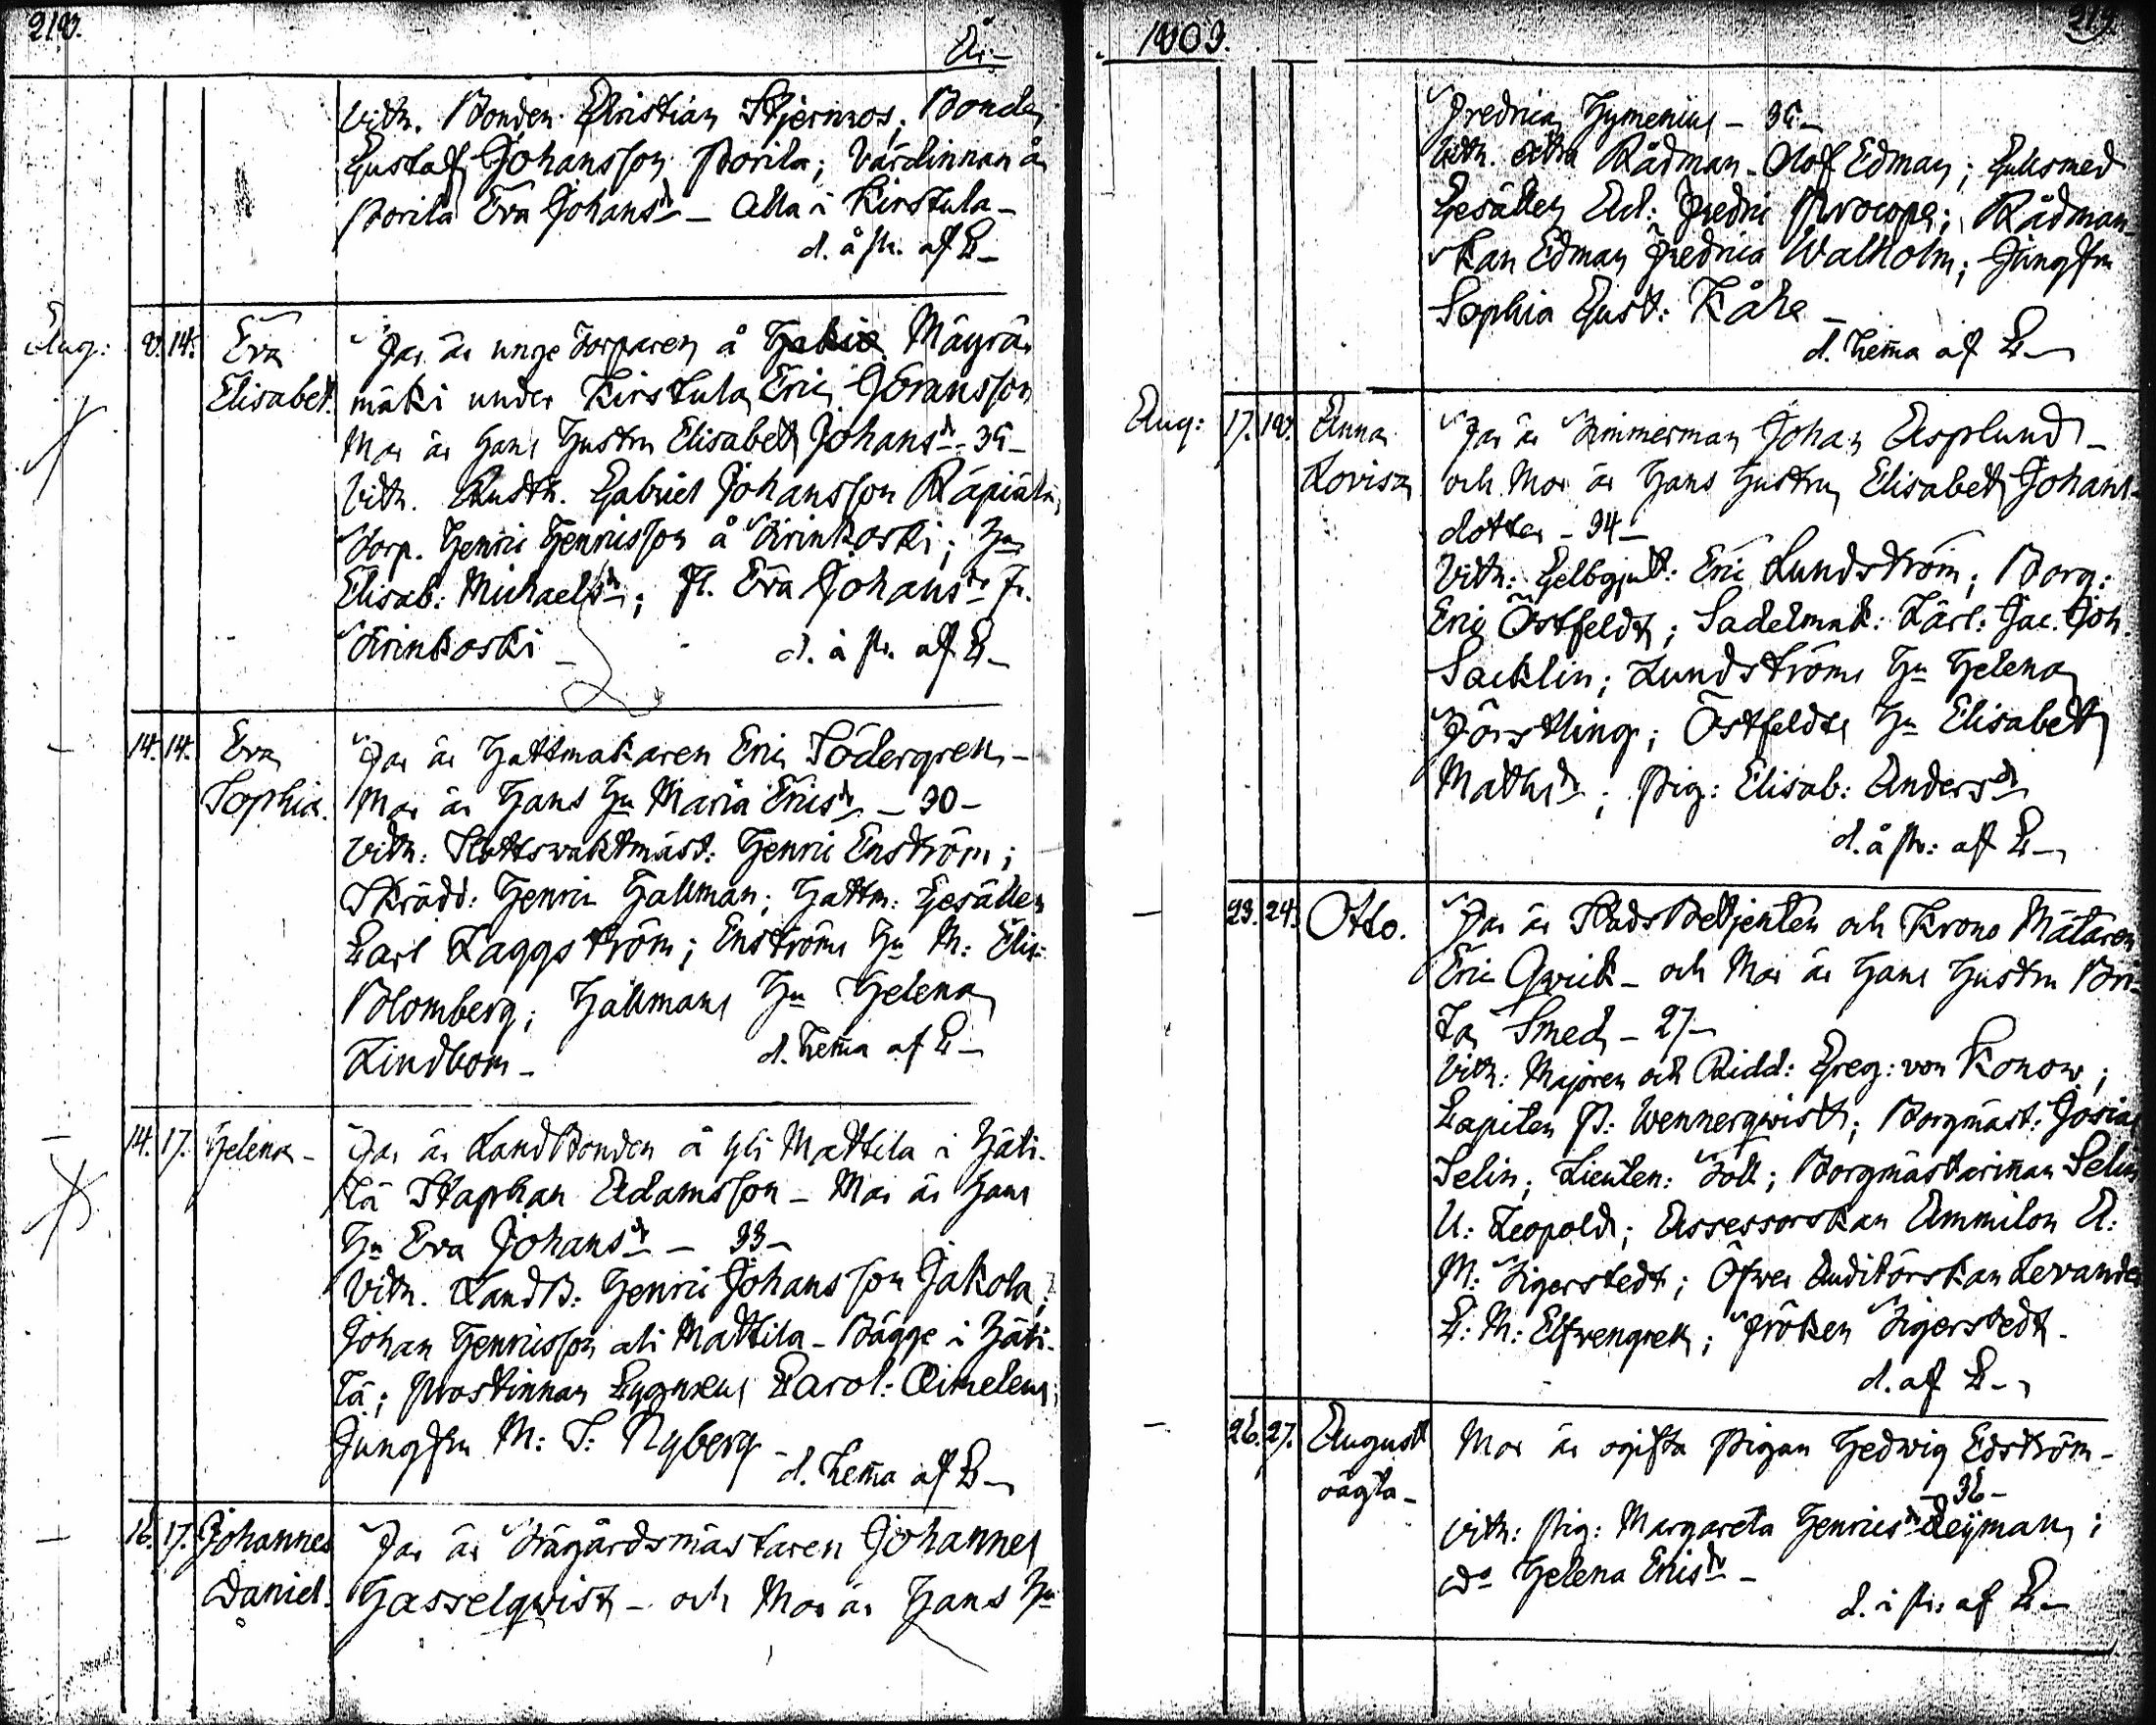 218.
År
Vitn. Bonden Christian Stjernvos; Bonden
Gustaf Johansson Porila; Värdinnan å
Porila Eva Johansdr – Alla i Kirstula –
d. å pr. af C –
Aug: 8. 14. Eva
Elisabet.
Far är unge Torparen å Mäyrä-
mäki under Kirstula Eric Göransson
Mor är Hans Hustru Elisabeth Johansdr – 35 –
Vitn. Rustn. Gabriel Johansson Räpiälä,
Torp. Henric Henricsson å Tirinkoski; Hu
Elisab: Michaelsdr; Pl. Eva Johansdr fr.
Tirinkoski – d. å pr. af C –
– 14. 14. Eva
Sophia.
Far är Hattmakaren Eric Södergren –
Mor är Hans Hu Maria Ericsdr – 30 –
Vitn: Slottsvaktmäst: Henric Enström;
Skrädd: Henric Hallman; Hattm: Gesällen
Carl Laggström; Enströms Hu M: Elis:
Blomberg; Hallmans Hu Helena
Lindbom – d. hema af C –
– 14. 17. Helena –
Far är LandBonden å Yli Mattila i Häti-
lä Staphan Adamsson – Mor är Hans
Hu Eva Johansdr – 33 –
Vitn. LandB: Henric Johansson Jakola;
Johan Henricsson ali Mattila – Bägge i Häti-
lä; Prostinnan Cygnæus Carol: Aimelæus;
Jungfru M: S: Nyberg –
d. hema af C –
– 16. 17. Johannes
Daniel.
Far är Trägårdsmästaren Johannes
Hasselqwist – och Mor är Hans Hu
1809.
219.
Fredrica Hymenius – 35 –
Vitn. extra Rådman Olof Edman; Gulsmed
Gesällen Ad: Fredric Procopé; Rådman-
skan Edman Fredrica Walholm; Jungfru
Sophia Gust: Kåhe –
d. hema af C –
Aug: 17. 18. Anna
Lovisa
Far är Timmerman Johan Asplund –
och Mor är Hans Hustru Elisabeth Johans-
dotter – 34 –
Vitn: Gelbgjut: Eric Lundström; Borg:
Eric Östfeldt; Sadelmak: Lärl: Jac. Joh.
Sacklin; Lundströms Hu Helena
Förstling; Östfeldts Hu Elisabeth
Mathsdr; Pig: Elisab: Andersdr
d. å pr: af C –
– 23. 24. Otto.
Far är StadsBetjenten och Krono Mätaren
Eric Qwick – och Mor är Hans Hustru Bri-
ta Smed – 27 –
Vitn: Majoren och Ridd: Greg: von Konow;
Capiten P: Wennerqwist; Borgmäst: Josias
Selin; Lieuten: Toll; Borgmästarinnan Selin
U: Leopold; Assessorskan Ammilon A:
M: Tigerstedt; Öfwer Auditörskan Levander
C: M: Elfwengren; Fröken Tigerstedt.
d. af C –
– 26. 27. August
oägta –
Mor är ogifta Pigan Hedwig Edström –
– 36 –
Vitn: Pig: Margareta Henricsdr Leijman;
Do Helena Ericsdr –
d. i pr: af C –